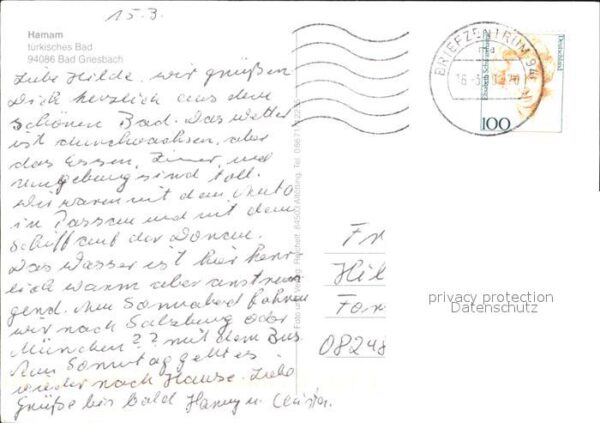 15.3.
Hamam
türkisches Bad
94086 Bad Griesbach
Liebe Hilde, wir grüßen
Dich herzlich aus dem
schönen Bad. Das Wetter
ist durchwachsen, aber
das Essen, Zimer, und
Umgebung sind toll.
Wir waren mit dem Auto
in Passau und mit dem
Schiff auf der Donau.
Das Wasser ist hier herr
lich warm aber anstren
gend. Am Sonnabend fahren
wir nach Salzburg oder
München?? mit dem Bus
Am Sonntag geht es
wieder nach Hause. Liebe
Grüße bis bald Hanny u.
Foto und Verlag 84503 Altötting, Tel.
BRIEFZENTRUM 94
Deutschland
100
Fr
Hil
Fon
08248
privacy protection
Datenschutz